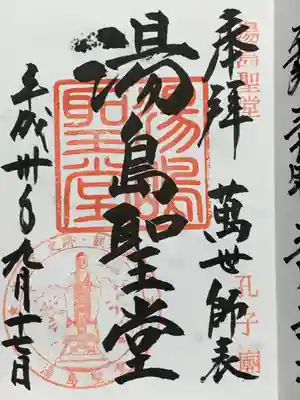 湯島聖堂
孔子廟
奉拝 萬世師表
湯島聖堂
湯島聖堂
平成卅年九月十七日
湯島聖堂